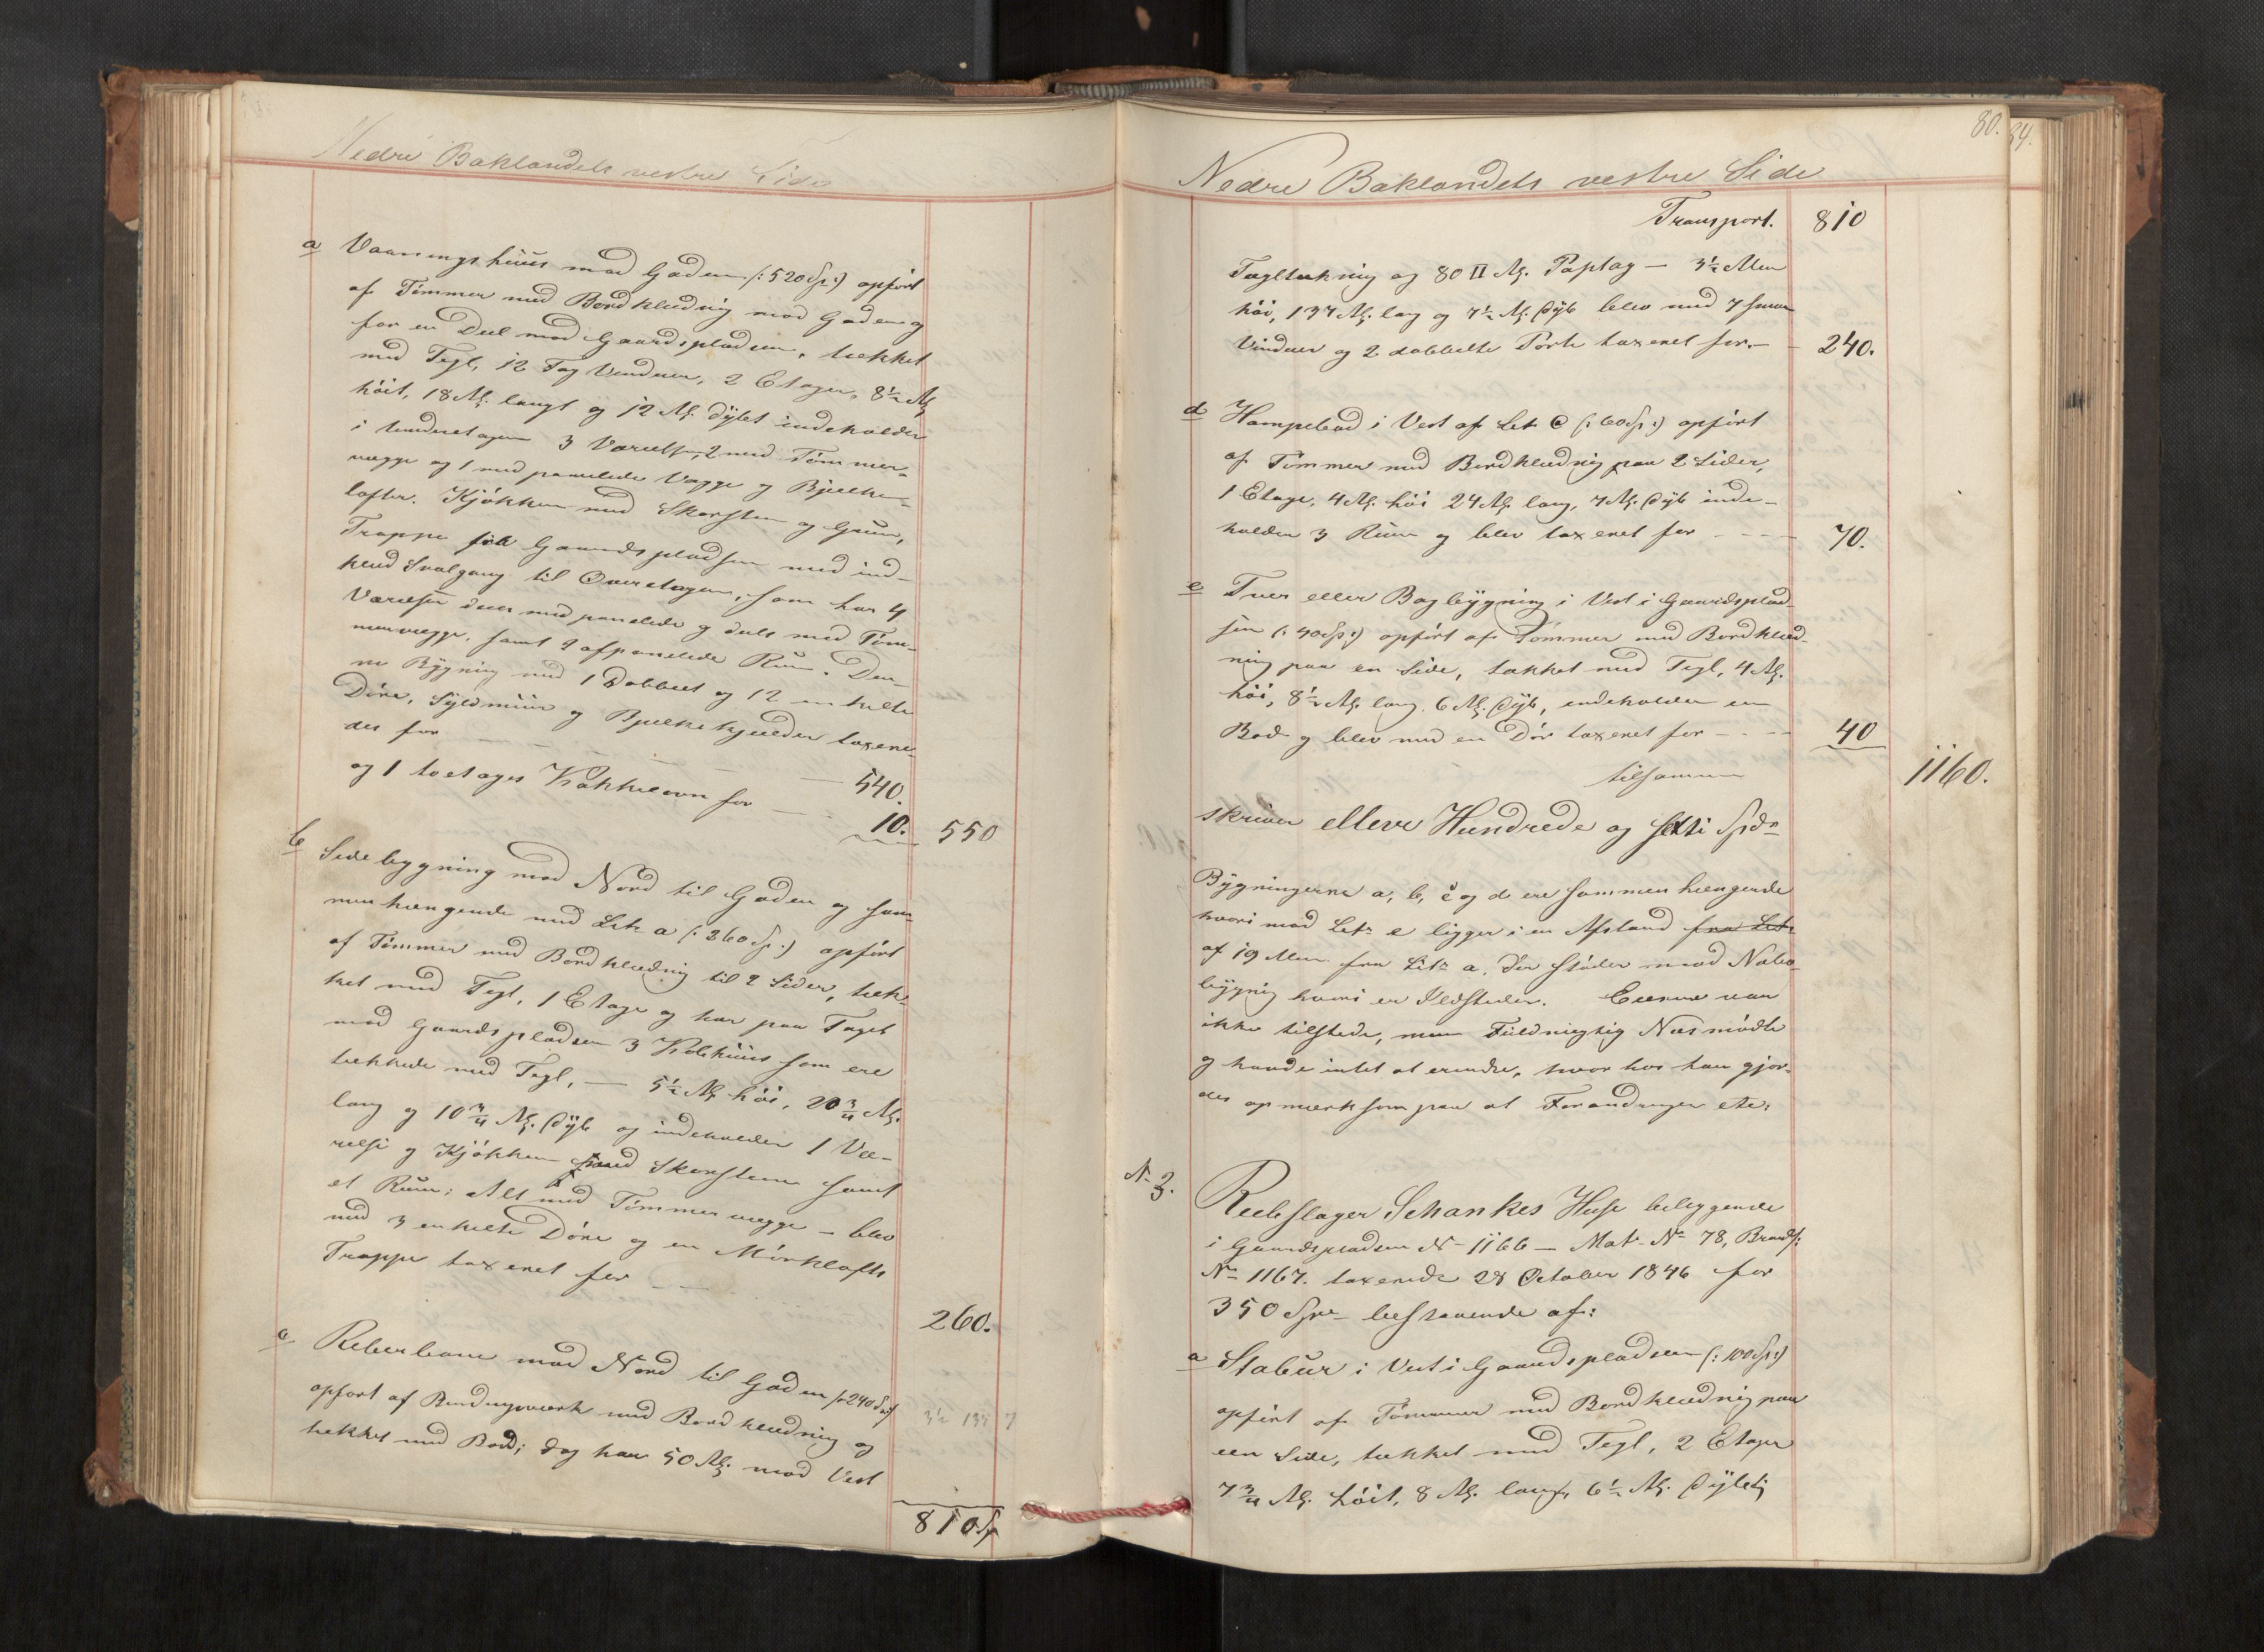 Nedre Baklandets vestre Side
a Vaaningshuus mod Gaden (: 520 Sp :) opført
af Tømmer med Bordklædnig mod Gaden og
for en Deel mod Gaardspladsen, tækket
med Tegl, 12 Fag Vinduer, 2 Etager, 8½ Al.
höit, 18 Al. langt og 12 Al. dybt indeholder
i Underetagen 3 Værelser, 2 med Tömmer-
vægge og 1 med panelede Vægge og Bjelke-
lofter. Kjökken med Skorsten og Gruue,
Trappe fra Gaardspladsen med ind-
klæd Svalgang til Overetagen, som har 4
Værelser deels med panelede og deels med Töm-
mervægge, samt 2 afpanelede Rum. Den-
ne Bygning med 1 Dobbelt og 12 enkelte
Döre, Syldmuur og Bjelkekjelder taxere-
des for - - - 540.
og 1 toetages Kakkelovn for - 10. 550
b Sidebygning mod Nord til Gaden og sam-
menhængende med Litr a (: 260 Sp :) opført
af Tömmer med Bordklædnig til 2 Sider, tæk-
ket med Tegl, 1 Etage og har paa Taget
mod Gaardspladsen 3 Kobhuus som ere
tækkede med Tegl, — 5½ Al. höi, 20¾ Al.
lang og 10¾ Al. dyb og indeholder 1 Væ-
relse og Kjökken med Skorsten samt
et Rum; Alt med Tömmervægge - blev
med 3 enkelte Döre og en Mörklofts
Trappe taxeret for - - 260.
c Reberbane mod Nord til Gaden (: 240 Sp :)
opfört af Bindingsværk med Bordklædning og
tækket med Bord; dog har 50 Al. mod Vest
3½ 137 7
810 Sp
80. 84.
Nedre Baklandets vestre Side
Transport. 810
Tagltækning og 80 II Al. Paptag — 3½ Alen
höi, 137 Al. lang og 7½ Al. dyb blev med 7 smaa
Vinduer og 2 dobbelte Porte taxeret for. — 240.
d Hampebod i Vest af Litr C (: 60 Sp :) opfört
af Tömmer med Bordklædnig paa 2 Sider,
1 Etage, 4 Al. höi 24 Al. lang, 7 Al. dyb inde-
holder 3 Rum og blev taxeret for - - - 70.
e Tver eller Bagbygning i Vest i Gaardsplad-
sen (: 40 Sp :) opfört af Tömmer med Bordklæd-
ning paa en Side, tækket med Tegl, 4 Al.
höi, 8½ Al. lang 6 Al. dyb, indeholder en
Bod og blev med en Dör taxeret for - - - 40
tilsammen 1160.
skriver elleve Hundrede og sexti Spd
Bygningerne a, b, c og d ere sammenhængende
hvorimod Litr e ligger i en Afstand fra Litr
af 19 Alen fra Litr a. der stöder mod Nabo-
bygnig hvori er Ildsteder. Eieren var
ikke tilstede, men Fuldmægtig Næs mödte
og havde intet at erindre, hvorhos han gjor-
des opmærksom paa at Forandringer etc.
N 3. Reebslager Schankes Huse beliggende
i Gaardspladsen N 1166 — Mat. No 78, Brandf:
No 1167. taxerede 28 October 1846 for
350 Spd bestaaende af:
a Stabur i Vest i Gaardspladsen (: 100 Sp :)
opfört af Tömmer med Bordklædnig paa
een Side, tækket med Tegl, 2 Etager
7¾ Al. höit, 8 Al. langt, 6½ Al. dybt;